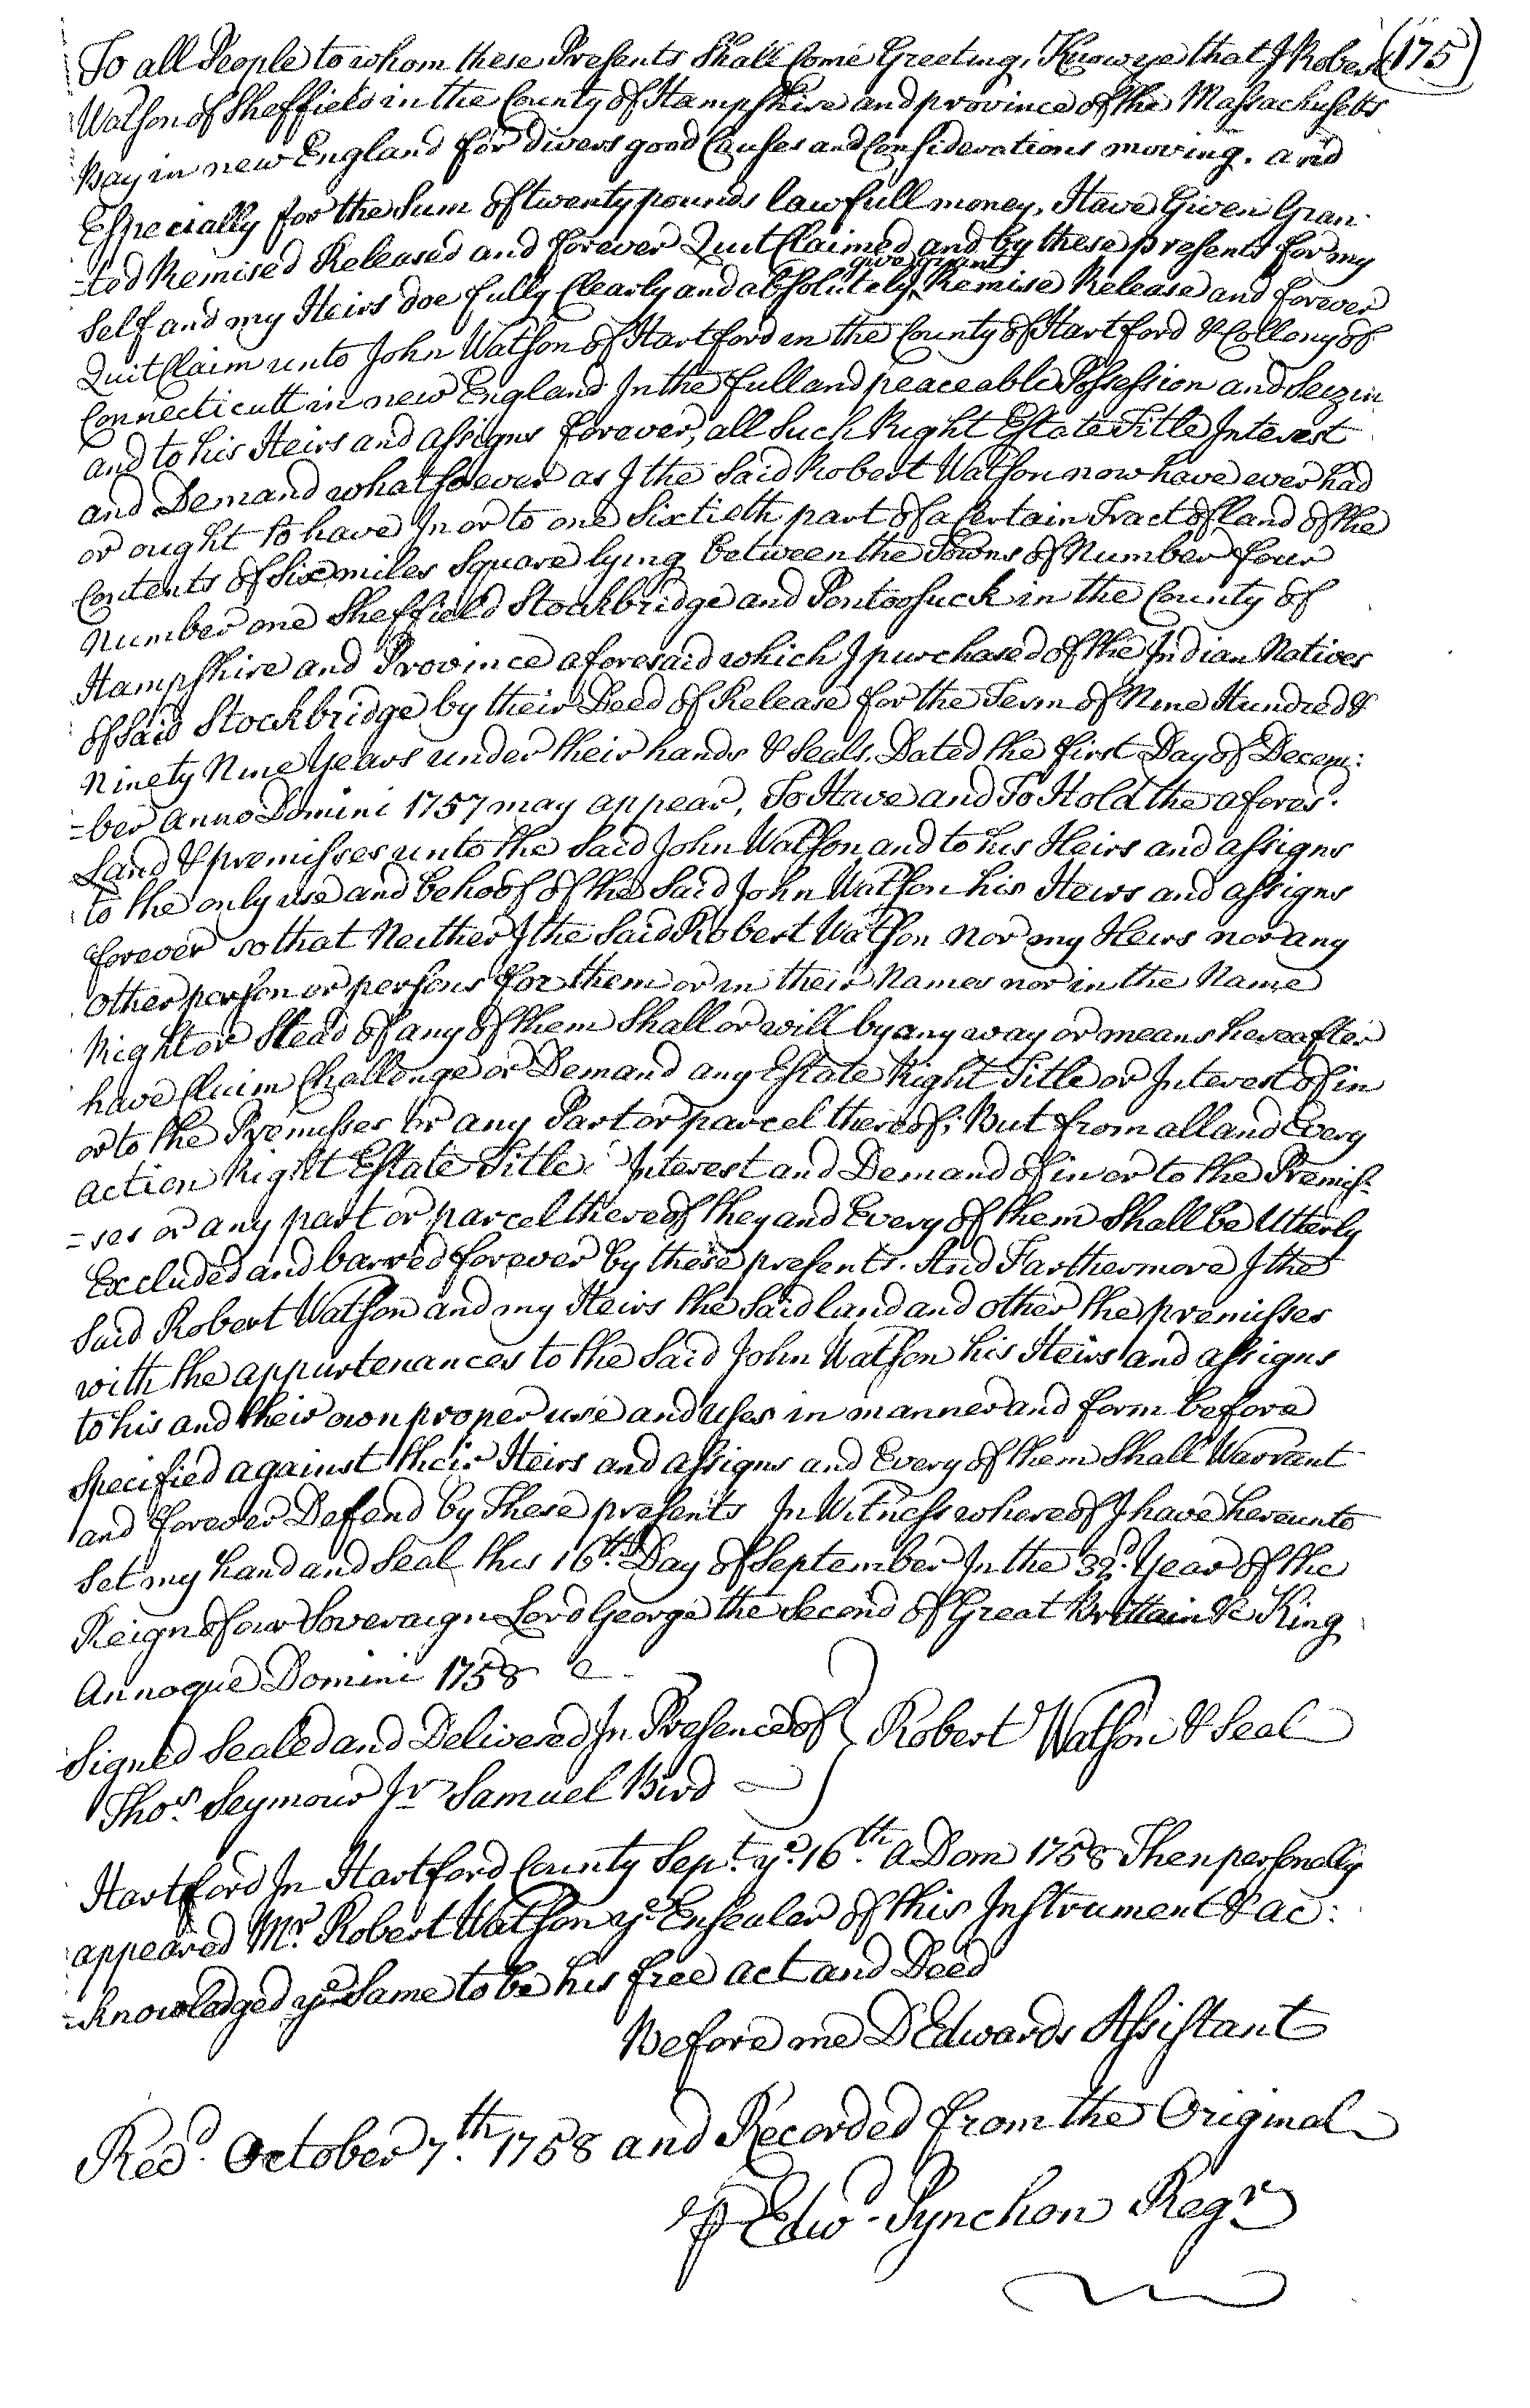 (175)
To all People to whom these Presents Shall Come Greeting, Know ye that I Robert
Watson of Sheffield in the County of Hampshire and province of the Massachusetts
Bay in new England for divers good Causes and Considerations moving. and
Especially for the Sum of twenty pounds lawfull money, Have Given Gran-
-ted Remised Released and forever Quit Claimed and by these presents for my
give grant
Self and my Heirs doe fully Clearly and absolutely ^ Remise Release and forever
Quit Claim unto John Watson of Hartford in the County of Hartford & Collony of
Connecticutt in new England In the full and peaceable Possession and Seizin
and to his Heirs and assigns forever, all Such Right Estate Title Interest
and Demand whatsoever as I the Said Robert Watson now have ever had
or ought to have In or to one Sixtieth part of a Certain Tract of land of the
Contents of Six miles Square lying between the Towns of Number four
number one Sheffield Stockbridge and Pontoosuck in the County of
Hampshire and Province aforesaid which I purchased of the Indian Natives
of Said Stockbridge by their Deed of Release for the Term of Nine Hundred &
Ninety Nine Years under their hands & Seals. Dated the first Day of Decem:
=ber Anno Domini 1757 may appear, To Have and To Hold the afores.d
Land & premisses unto the Said John Watson and to his Heirs and assigns
to the only use and behoof of the Said John Watson his Heirs and assigns
forever so that Neither I the Said Robert Watson nor my Heirs nor any
other person or persons for them or in their Names nor in the Name
Right or Stead of any of them Shall or will by any way or means hereafter
have Claim Challenge or Demand any Estate Right Title or Interest of in
or to the Premisses or any Part or parcel thereof; But from all and Every
action Right Estate Title Interest and Demand of in or to the Premis-
=ses or any part or parcel thereof they and Every of them Shall be Utterly
Excluded and barred forever by these presents. And Farthermore I the
Said Robert Watson and my Heirs the Said land and other the premisses
with the appurtenances to the Said John Watson his Heirs and assigns
to his and their own proper use and Uses in manner and form before
Specified against their Heirs and assigns and Every of them Shall Warrant
and forever Defend by These presents In Witness whereof I have hereunto
Set my hand and Seal this 16th Day of September In the 32d Year of the
Reign of our Soveraign Lord George the Second of Great Brittain &c King
Annoque Domini 1758
Signed Sealed and Delivered In Presence of } Robert Watson & Seal
Thos. Seymour Jr Samuel Bird
Hartford In Hartford County Sept. ye 16th A Dom 1758 Then personally
appeared Mr. Robert Watson ye Ensealer of this Instrument & ac:
=knowledged ye Same to be his free act and Deed
Before me D Edwards Assistant
Recd. October 7th. 1758 and Recorded from the Original
℔ Edwd. Pynchon Regr